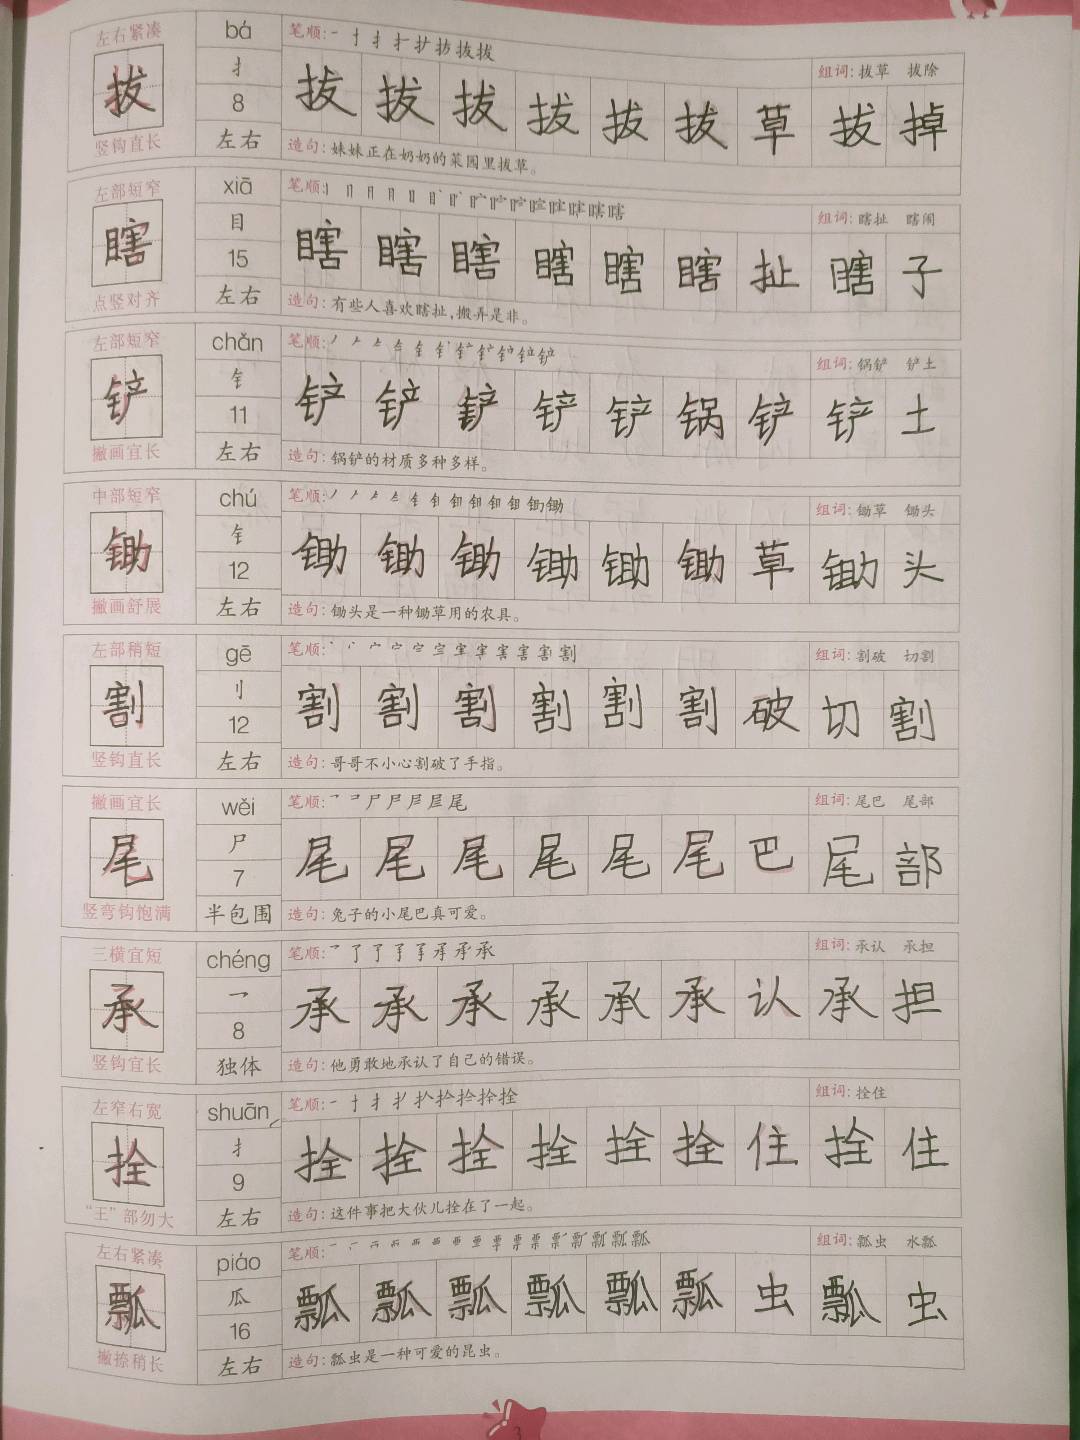 左右紧凑
拔
竖钩直长
bá
扌
8
左右
笔顺: 拔拔
组词: 拔草 拔除
拔 拔 拔 拔 拔 拔 草 拔 掉
造句: 妹妹正在奶奶的菜园里拔草。
左部短窄
瞎
点竖对齐
xiā
目
15
左右
笔顺: 瞎瞎
组词: 瞎扯 瞎闹
瞎 瞎 瞎 瞎 瞎 瞎 扯 瞎 子
造句: 有些人喜欢瞎扯,搬弄是非。
左部短窄
铲
撇画宜长
chǎn
钅
11
左右
笔顺: 铲
组词: 锅铲 铲土
铲 铲 铲 铲 铲 锅 铲 铲 土
造句: 锅铲的材质多种多样。
中部短窄
锄
撇画舒展
chú
钅
12
左右
笔顺: 锄
组词: 锄草 锄头
锄 锄 锄 锄 锄 锄 草 锄 头
造句: 锄头是一种锄草用的农具。
左部稍短
割
竖钩直长
gē
刂
12
左右
笔顺: 割
组词: 割破 切割
割 割 割 割 割 割 破 切 割
造句: 哥哥不小心割破了手指。
撇画宜长
尾
竖弯钩饱满
wěi
尸
7
半包围
笔顺: 尾
组词: 尾巴 尾部
尾 尾 尾 尾 尾 尾 巴 尾 部
造句: 兔子的小尾巴真可爱。
三横宜短
承
竖钩宜长
chéng
乛
8
独体
笔顺: 承
组词: 承认 承担
承 承 承 承 承 承 认 承 担
造句: 他勇敢地承认了自己的错误。
左窄右宽
拴
“王”部勿大
shuān
扌
9
左右
笔顺: 拴
组词: 拴住
拴 拴 拴 拴 拴 拴 住 拴 住
造句: 这件事把大伙儿拴在了一起。
左右紧凑
瓢
撇捺稍长
piáo
瓜
16
左右
笔顺: 瓢
组词: 瓢虫 水瓢
瓢 瓢 瓢 瓢 瓢 瓢 虫 瓢 虫
造句: 瓢虫是一种可爱的昆虫。
3